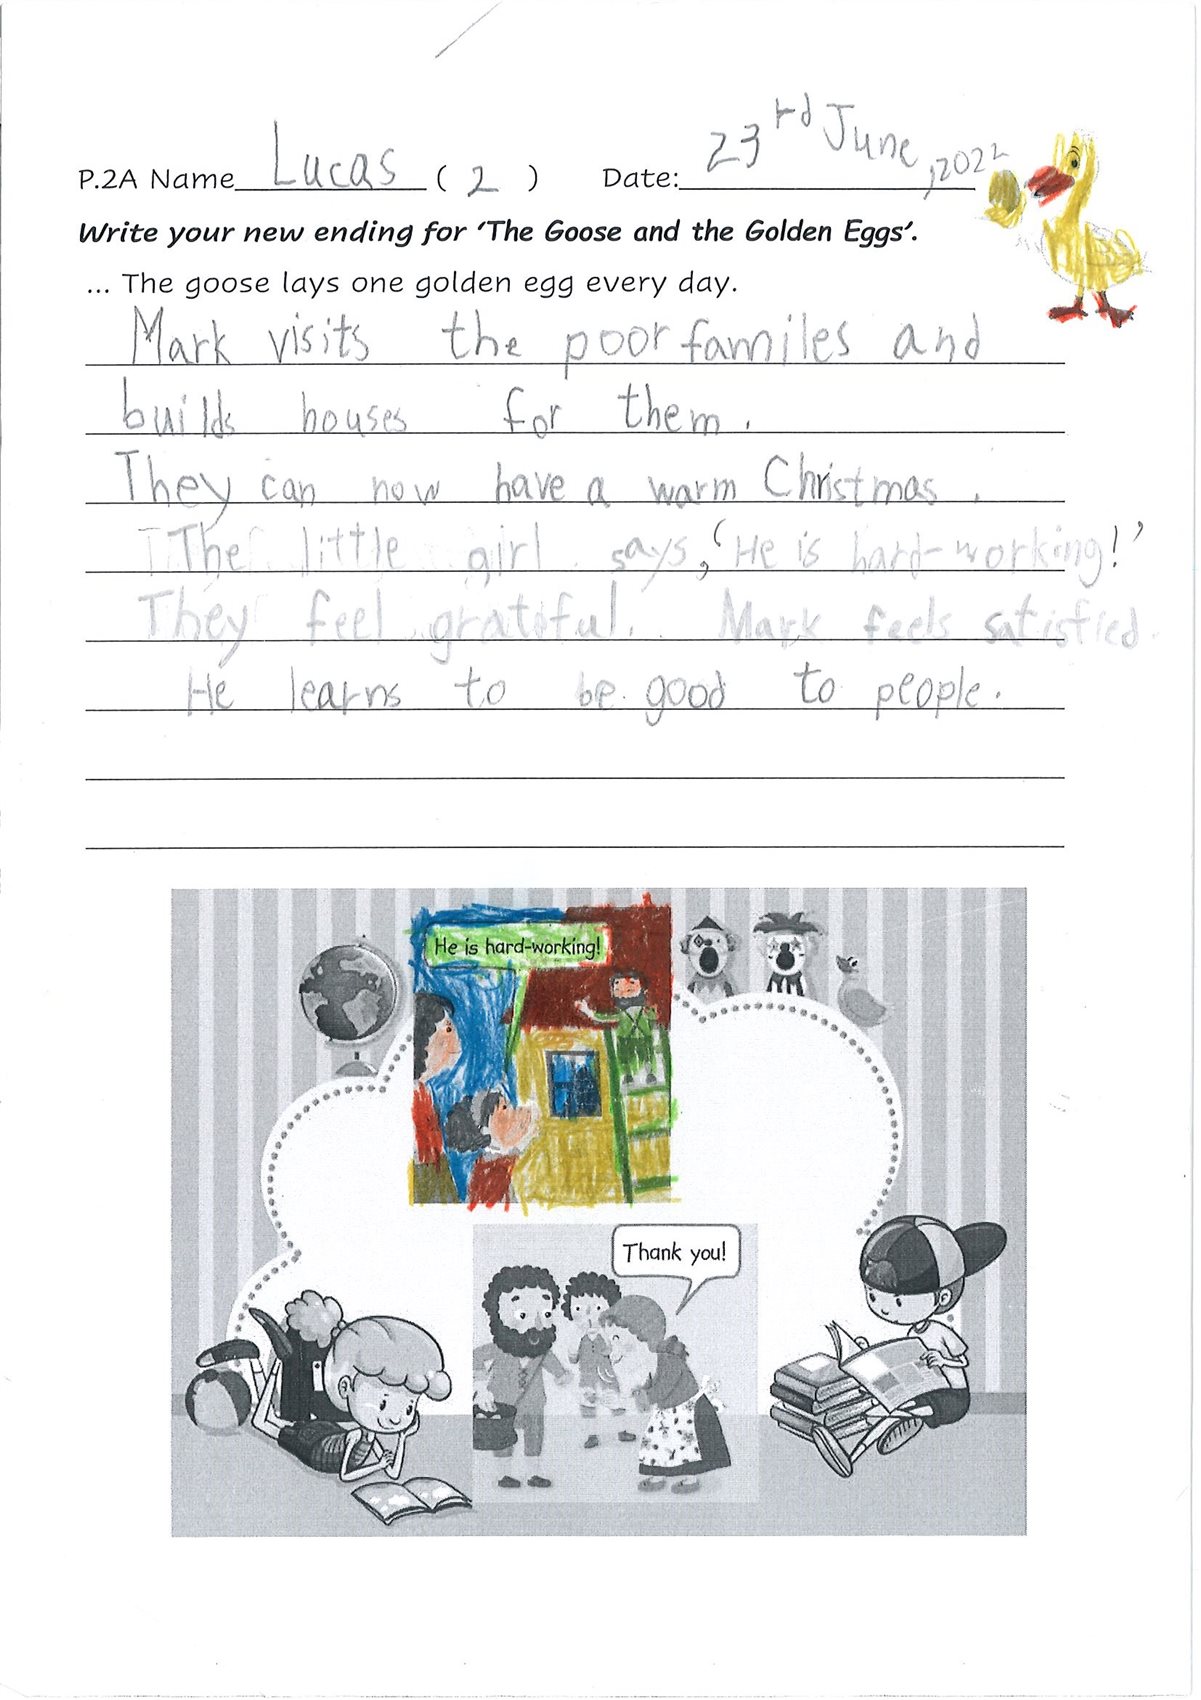 P.2A Name Lucas ( 2 ) Date: 23rd June, 2022
Write your new ending for ‘The Goose and the Golden Eggs’.
... The goose lays one golden egg every day.
Mark visits the poor familes and
builds houses for them.
They can now have a warm Christmas.
The little girl says, ‘He is hard-working!’
They feel grateful. Mark feels satisfied.
He learns to be good to people.
He is hard-working!
Thank you!